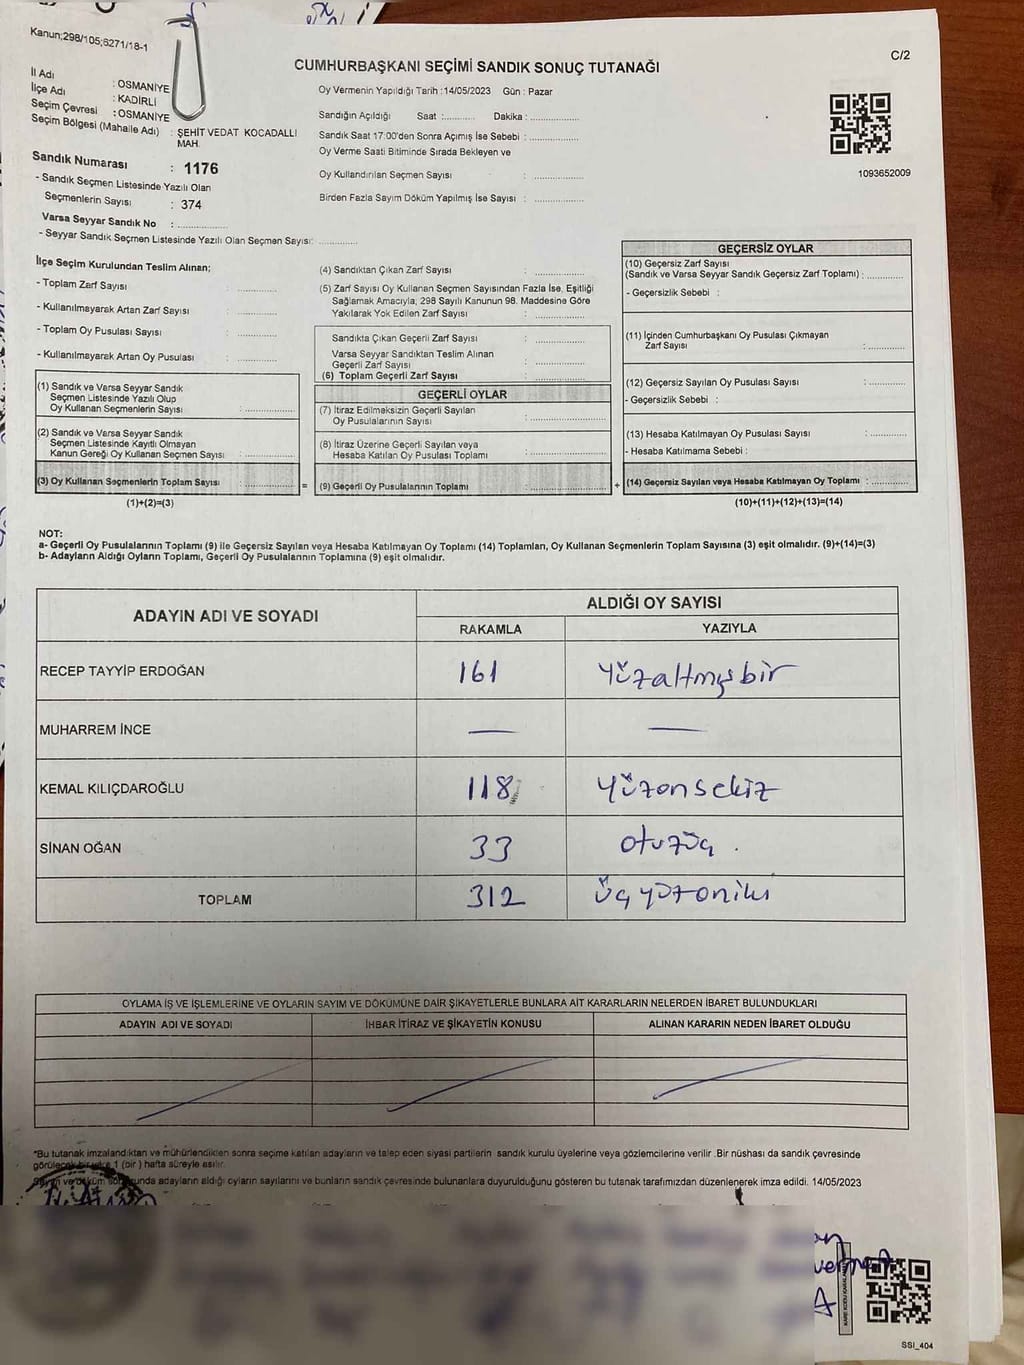 Kanun;298/105;6271/18-1
C/2
CUMHURBAŞKANI SEÇİMİ SANDIK SONUÇ TUTANAĞI
İl Adı : OSMANİYE
İlçe Adı : KADİRLİ
Seçim Çevresi : OSMANİYE
Seçim Bölgesi (Mahalle Adı) : ŞEHİT VEDAT KOCADALLI MAH.
Sandık Numarası : 1176
- Sandık Seçmen Listesinde Yazılı Olan
Seçmenlerin Sayısı : 374
Varsa Seyyar Sandık No : ..............
- Seyyar Sandık Seçmen Listesinde Yazılı Olan Seçmen Sayısı: ............
Oy Vermenin Yapıldığı Tarih :14/05/2023 Gün : Pazar
Sandığın Açıldığı Saat :.......... Dakika : ................
Sandık Saat 17:00'den Sonra Açımış İse Sebebi : ................
Oy Verme Saati Bitiminde Sırada Bekleyen ve
Oy Kullandırılan Seçmen Sayısı : ................
Birden Fazla Sayım Döküm Yapılmış İse Sayısı : ................
1093652009
İlçe Seçim Kurulundan Teslim Alınan;
- Toplam Zarf Sayısı : ............
- Kullanılmayarak Artan Zarf Sayısı : ............
- Toplam Oy Pusulası Sayısı : ............
- Kullanılmayarak Artan Oy Pusulası : ............
(1) Sandık ve Varsa Seyyar Sandık
Seçmen Listesinde Yazılı Olup
Oy Kullanan Seçmenlerin Sayısı : ................
(2) Sandık ve Varsa Seyyar Sandık
Seçmen Listesinde Kayıtlı Olmayan
Kanun Gereği Oy Kullanan Seçmen Sayısı : ................
(3) Oy Kullanan Seçmenlerin Toplam Sayısı : ................
(1)+(2)=(3)
(4) Sandıktan Çıkan Zarf Sayısı : ................
(5) Zarf Sayısı Oy Kullanan Seçmen Sayısından Fazla İse, Eşitliği
Sağlamak Amacıyla, 298 Sayılı Kanunun 98. Maddesine Göre
Yakılarak Yok Edilen Zarf Sayısı : ................
Sandıkta Çıkan Geçerli Zarf Sayısı : ................
Varsa Seyyar Sandıktan Teslim Alınan
Geçerli Zarf Sayısı : ................
(6) Toplam Geçerli Zarf Sayısı : ................
GEÇERLİ OYLAR
(7) İtiraz Edilmeksizin Geçerli Sayılan
Oy Pusulalarının Sayısı : ................
(8) İtiraz Üzerine Geçerli Sayılan veya
Hesaba Katılan Oy Pusulası Toplamı : ................
= (9) Geçerli Oy Pusulalarının Toplamı : ................ +
GEÇERSİZ OYLAR
(10) Geçersiz Zarf Sayısı
(Sandık ve Varsa Seyyar Sandık Geçersiz Zarf Toplamı) : ............
- Geçersizlik Sebebi :
(11) İçinden Cumhurbaşkanı Oy Pusulası Çıkmayan
Zarf Sayısı : ............
(12) Geçersiz Sayılan Oy Pusulası Sayısı : ............
- Geçersizlik Sebebi :
(13) Hesaba Katılmayan Oy Pusulası Sayısı : ............
- Hesaba Katılmama Sebebi :
(14) Geçersiz Sayılan veya Hesaba Katılmayan Oy Toplamı : ............
(10)+(11)+(12)+(13)=(14)
NOT:
a- Geçerli Oy Pusulalarının Toplamı (9) ile Geçersiz Sayılan veya Hesaba Katılmayan Oy Toplamı (14) Toplamları, Oy Kullanan Seçmenlerin Toplam Sayısına (3) eşit olmalıdır. (9)+(14)=(3)
b- Adayların Aldığı Oyların Toplamı, Geçerli Oy Pusulalarının Toplamına (9) eşit olmalıdır.
ADAYIN ADI VE SOYADI ALDIĞI OY SAYISI
RAKAMLA YAZIYLA
RECEP TAYYİP ERDOĞAN 161 yüzaltmışbir
MUHARREM İNCE — —
KEMAL KILIÇDAROĞLU 118 yüzonsekiz
SİNAN OĞAN 33 otuzüç .
TOPLAM 312 üçyüzoniki
OYLAMA İŞ VE İŞLEMLERİNE VE OYLARIN SAYIM VE DÖKÜMÜNE DAİR ŞİKAYETLERLE BUNLARA AİT KARARLARIN NELERDEN İBARET BULUNDUKLARI
ADAYIN ADI VE SOYADI İHBAR İTİRAZ VE ŞİKAYETİN KONUSU ALINAN KARARIN NEDEN İBARET OLDUĞU
*Bu tutanak imzalandıktan ve mühürlendikten sonra seçime katılan adayların ve talep eden siyasi partilerin sandık kurulu üyelerine veya gözlemcilerine verilir .Bir nüshası da sandık çevresinde
görülecek bir yere 1 (bir ) hafta süreyle asılır.
Sayım ve döküm sonucunda adayların aldığı oyların sayılarını ve bunların sandık çevresinde bulunanlara duyurulduğunu gösteren bu tutanak tarafımızdan düzenlenerek imza edildi. 14/05/2023
SSI_404